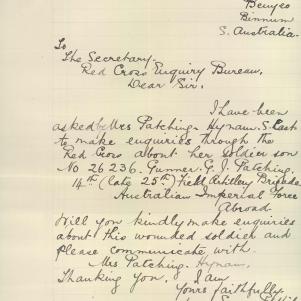 Benyeo
Binnum
S. Australia.
To
The Secretary.
Red Cross Enquiry Bureau.
Dear Sir.
I have been
asked by Mrs Patching. Hynam. S. East
to make enquiries through the
Red Cross about her soldier son
No 26236. Gunner. G. J. Patching.
14th (late 25th) Field Artillery Brigade
Australian Imperial Force
Abroad.
Will you kindly make enquiries
about this wounded soldier and
please communicate with.
Mrs Patching. Hynam.
Thanking you, I am
Yours faithfully.